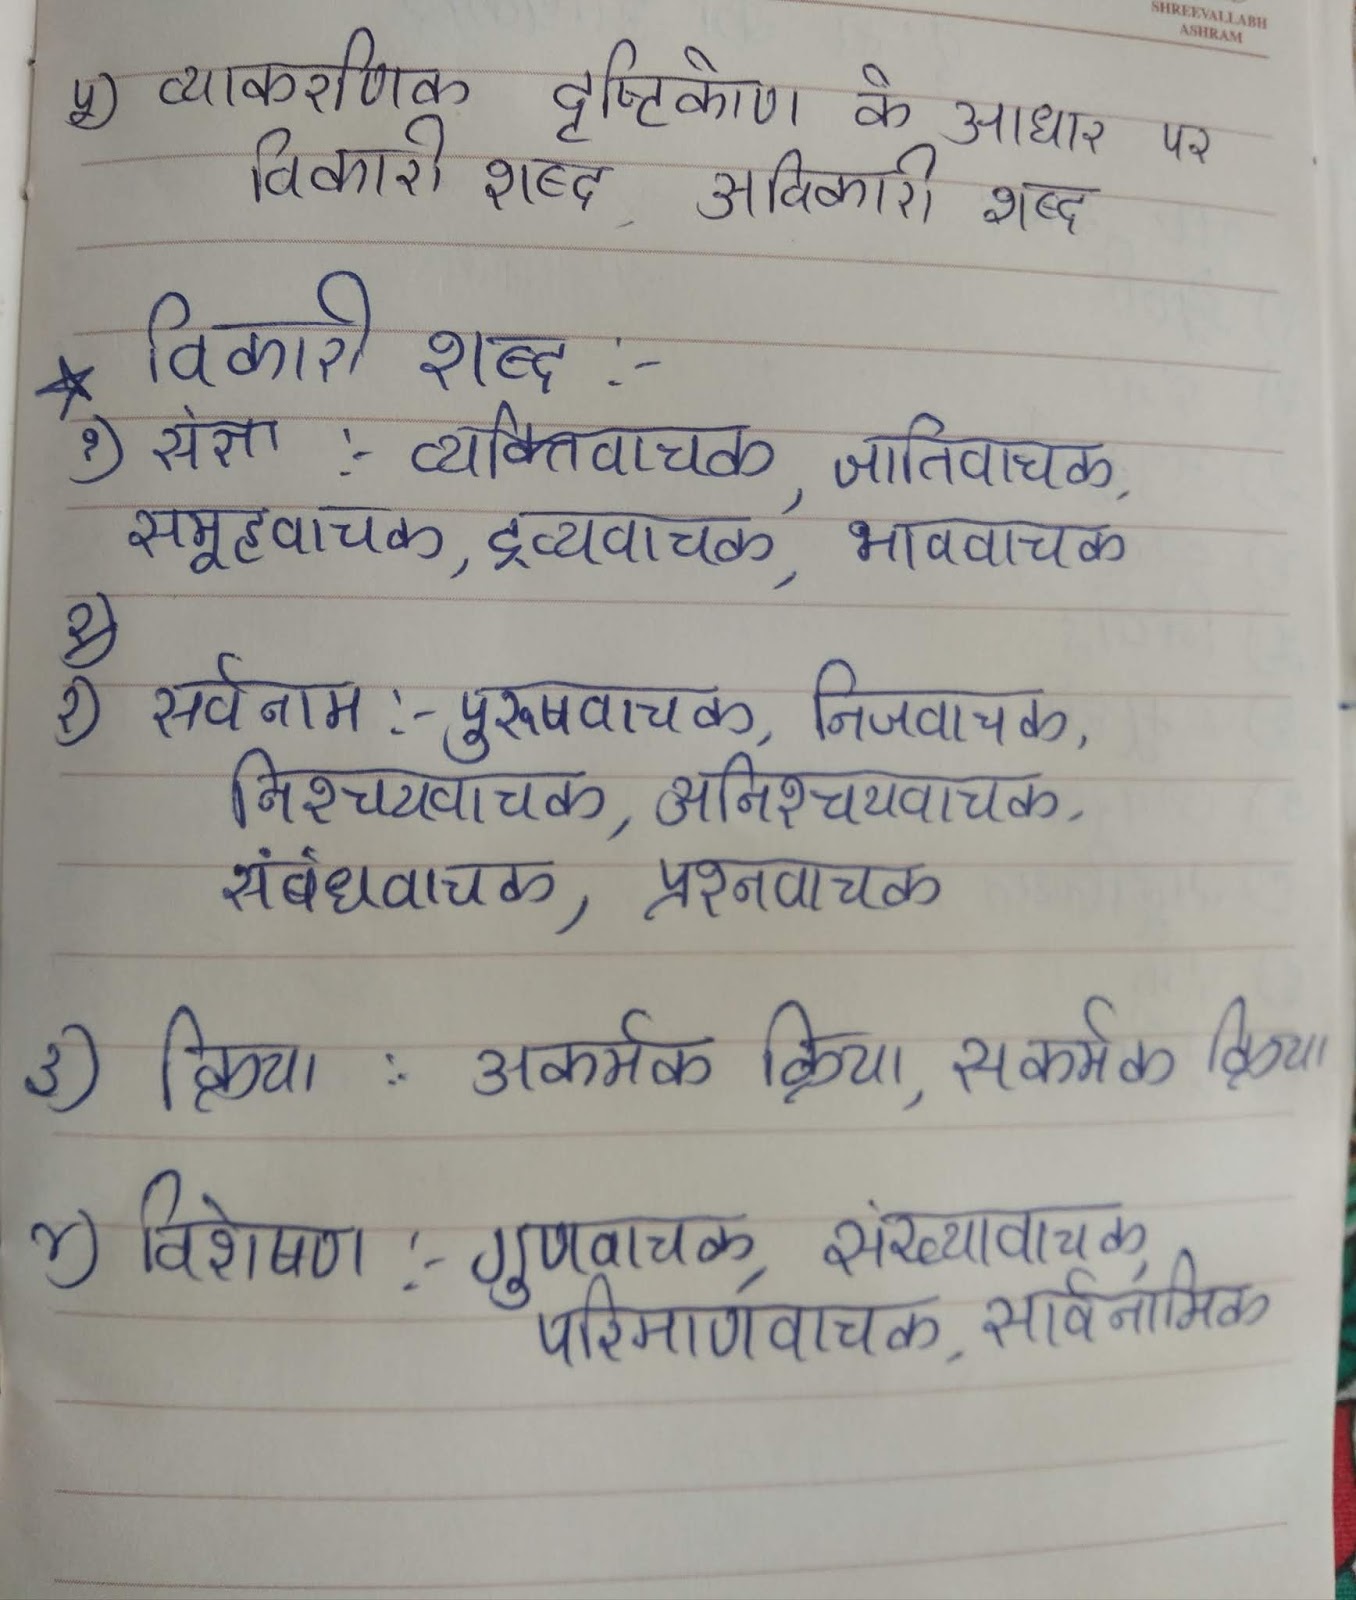 SHREEVALLABH
ASHRAM
५) व्याकरणिक दृष्टिकोण के आधार पर
विकारी शब्द, अविकारी शब्द
★ विकारी शब्द :-
१) संज्ञा :- व्यक्तिवाचक, जातिवाचक,
समूहवाचक, द्रव्यवाचक, भाववाचक
२)
२) सर्वनाम :- पुरूषवाचक, निजवाचक,
निश्चयवाचक, अनिश्चयवाचक,
संबंधवाचक, प्रश्नवाचक
३) क्रिया :- अकर्मक क्रिया, सकर्मक क्रिया
४) विशेषण :- गुणवाचक, संख्यावाचक,
परिमाणवाचक, सार्वनामिक